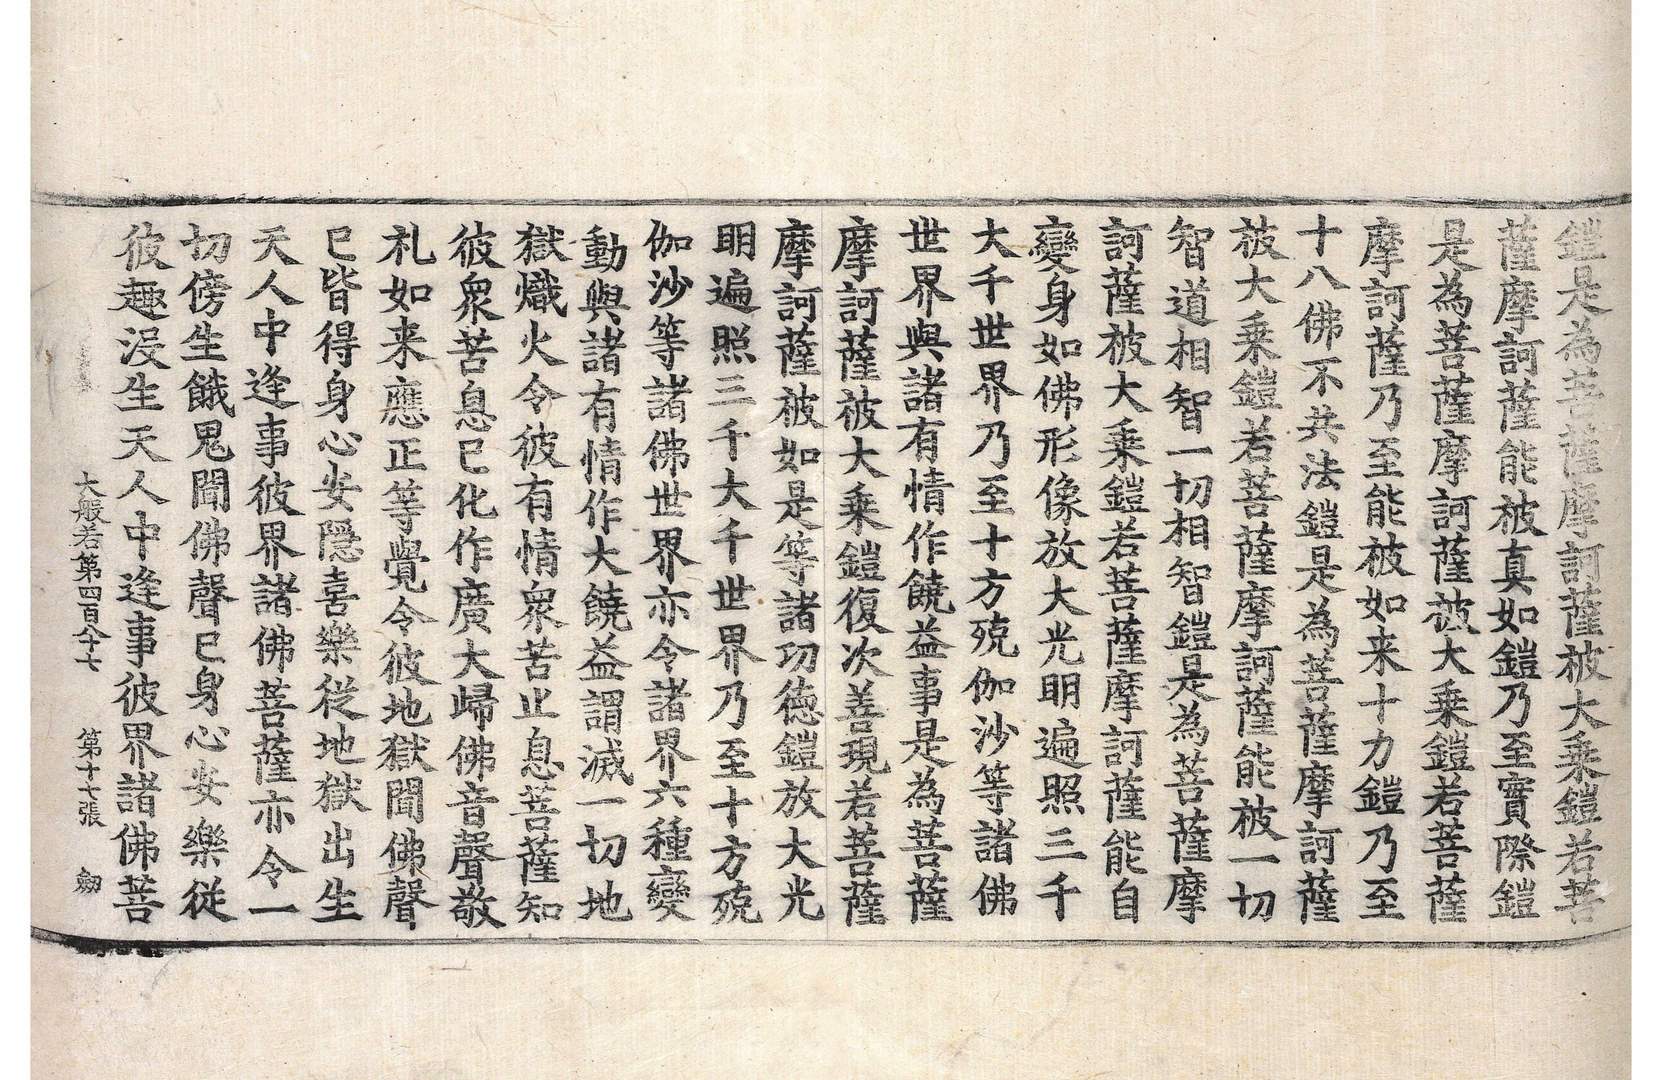 鎧是為菩薩摩訶薩被大乘鎧若菩
薩摩訶薩能被真如鎧乃至實際鎧
是為菩薩摩訶薩被大乘鎧若菩薩
摩訶薩乃至能被如来十力鎧乃至
十八佛不共法鎧是為菩薩摩訶薩
被大乘鎧若菩薩摩訶薩能被一切
智道相智一切相智鎧是為菩薩摩
訶薩被大乘鎧若菩薩摩訶薩能自
變身如佛形像放大光明遍照三千
大千世界乃至十方殑伽沙等諸佛
世界與諸有情作饒益事是為菩薩
摩訶薩被大乘鎧復次善現若菩薩
摩訶薩被如是等諸功德鎧放大光
明遍照三千大千世界乃至十方殑
伽沙等諸佛世界亦令諸界六種變
動與諸有情作大饒益謂滅一切地
獄熾火令彼有情衆苦止息菩薩知
彼衆苦息已化作廣大歸佛音聲敬
礼如来應正等覺令彼地獄聞佛聲
已皆得身心安隱喜樂從地獄出生
天人中逢事彼界諸佛菩薩亦令一
切傍生餓鬼聞佛聲已身心安樂從
彼趣没生天人中逢事彼界諸佛菩
大般若第四百八十七 第十七張 劒